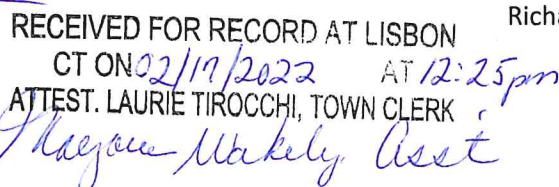 Richa
RECEIVED FOR RECORD AT LISBON
CT ON 02/17/2022 AT 12:25pm
ATTEST. LAURIE TIROCCHI, TOWN CLERK
Wakely Asst